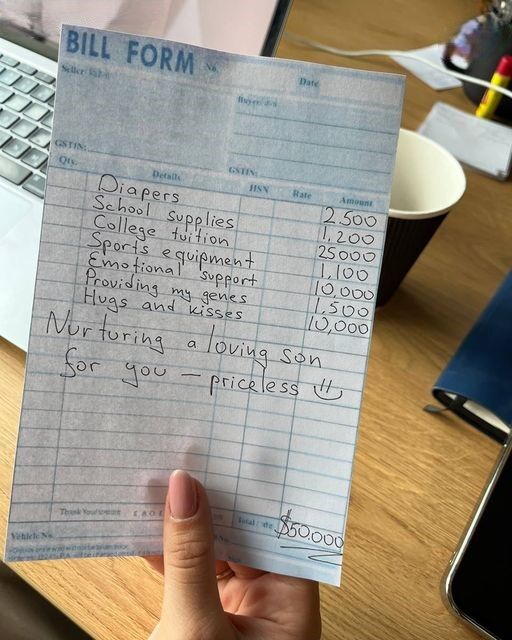 BILL FORM No.
Date
Seller:
Buyer:
GSTIN:
GSTIN:
Qty. Details HSN Rate Amount
Diapers 2.500
School supplies 1,200
College tuition 25000
Sports equipment 1,100
Emotional support 10,000
Providing my genes 1,500
Hugs and kisses 10,000
Nurturing a loving son
for you – priceless
Thank You
Total $50.000
Vehicle No.